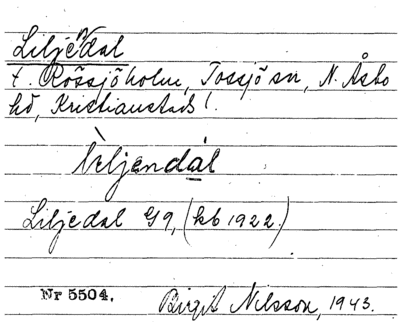 Liljendal
t. Rössjöholm, Tossjö sn, N. Åsbo
hd, Kristianstads l.
lìljəndal
Liljedal G9, (kb 1922.)
Nr 5504. Birgit Nilsson, 1943.